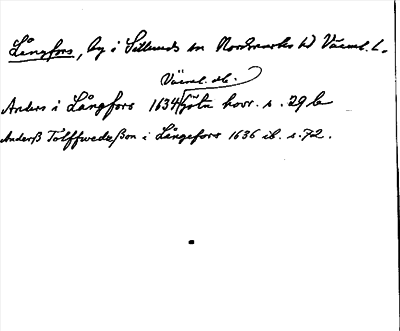 Långfors, by i Sillerud sn Nordmarks hd Värml. l.
Värml. dl.
Anders i Långfors 1634 Göta hovr. s. 29 b
Anderß Tolffwedzßon i Långefors 1636 ib. s. 72.